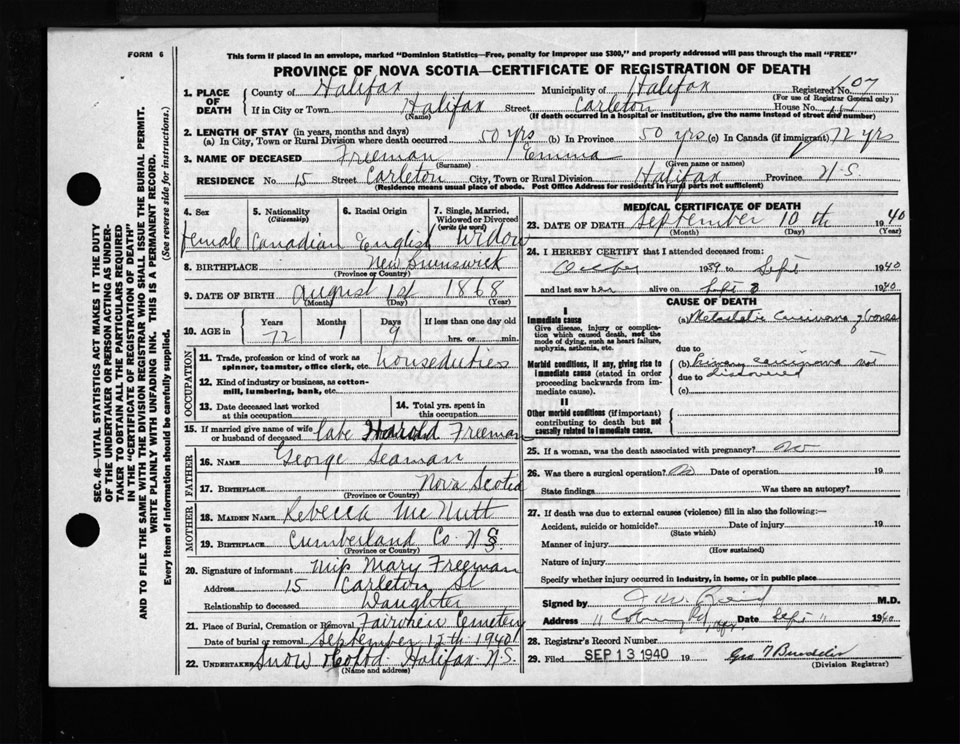 FORM 6
This form if placed in an envelope, marked "Dominion Statistics—Free, penalty for improper use $300," and properly addressed will pass through the mail "FREE"
PROVINCE OF NOVA SCOTIA—CERTIFICATE OF REGISTRATION OF DEATH
SEC. 46—VITAL STATISTICS ACT MAKES IT THE DUTY
OF THE UNDERTAKER OR PERSON ACTING AS UNDER-
TAKER TO OBTAIN ALL THE PARTICULARS REQUIRED
IN THE "CERTIFICATE OF REGISTRATION OF DEATH"
AND TO FILE THE SAME WITH THE DIVISION REGISTRAR WHO SHALL ISSUE THE BURIAL PERMIT.
WRITE PLAINLY WITH UNFADING INK. THIS IS A PERMANENT RECORD.
Every item of information should be carefully supplied. (See reverse side for instructions.)
1. PLACE OF DEATH County of Halifax Municipality of Halifax Registered No. 607
(For use of Registrar General only)
If in City or Town Halifax Street Carleton House No.
(Name) (If death occurred in a hospital or institution, give the name instead of street and number)
2. LENGTH OF STAY (in years, months and days)
(a) In City, Town or Rural Division where death occurred 50 yrs (b) In Province 50 yrs (c) In Canada (if immigrant) 72 yrs
3. NAME OF DECEASED Freeman Emma
(Surname) (Given name or names)
RESIDENCE No. 15 Street Carleton City, Town or Rural Division Halifax Province N.S
(Residence means usual place of abode. Post Office Address for residents in rural parts not sufficient)
4. Sex 5. Nationality (Citizenship) 6. Racial Origin 7. Single, Married, Widowed or Divorced (write the word)
female Canadian English Widow
8. BIRTHPLACE New Brunswick
(Province or Country)
9. DATE OF BIRTH August 1st 1868
(Month) (Day) (Year)
10. AGE in Years Months Days If less than one day old
72 1 9 hrs. or min.
OCCUPATION
11. Trade, profession or kind of work as spinner, teamster, office clerk, etc. houseduties
12. Kind of industry or business, as cotton-mill, lumbering, bank, etc.
13. Date deceased last worked at this occupation
14. Total yrs. spent in this occupation
15. If married give name of wife or husband of deceased late Harold Freeman
FATHER
16. NAME George Seaman
17. BIRTHPLACE Nova Scotia
(Province or Country)
MOTHER
18. MAIDEN NAME Rebecca McNutt
19. BIRTHPLACE Cumberland Co. N.S.
(Province or Country)
20. Signature of informant Miss Mary Freeman
Address 15 Carleton St
Relationship to deceased Daughter
21. Place of Burial, Cremation or Removal Fairview Cemetery
Date of burial or removal September 12th 1940
22. UNDERTAKER Snow & Co Ltd Halifax N.S.
(Name and address)
MEDICAL CERTIFICATE OF DEATH
23. DATE OF DEATH September 10th 1940
(Month) (Day) (Year)
24. I HEREBY CERTIFY that I attended deceased from:
October 1939 to Sept 1940
and last saw her alive on Sept 8 1940
CAUSE OF DEATH
I
Immediate cause
Give disease, injury or complication which caused death, not the mode of dying, such as heart failure, asphyxia, asthenia, etc.
(a) Metastatic Carcinoma of bones
due to
Morbid conditions, if any, giving rise to immediate cause (stated in order proceeding backwards from immediate cause).
(b) Primary carcinoma not
due to discovered
(c)
II
Other morbid conditions (if important) contributing to death but not causally related to immediate cause.
25. If a woman, was the death associated with pregnancy? No
26. Was there a surgical operation? No Date of operation 19
State findings Was there an autopsy?
27. If death was due to external causes (violence) fill in also the following:—
Accident, suicide or homicide? Date of injury 19
(State which)
Manner of injury
(How sustained)
Nature of injury
Specify whether injury occurred in industry, in home, or in public place
Signed by J W Reid M.D.
Address Date Sept 11 1940
28. Registrar's Record Number
29. Filed SEP 13 1940 19
(Division Registrar)